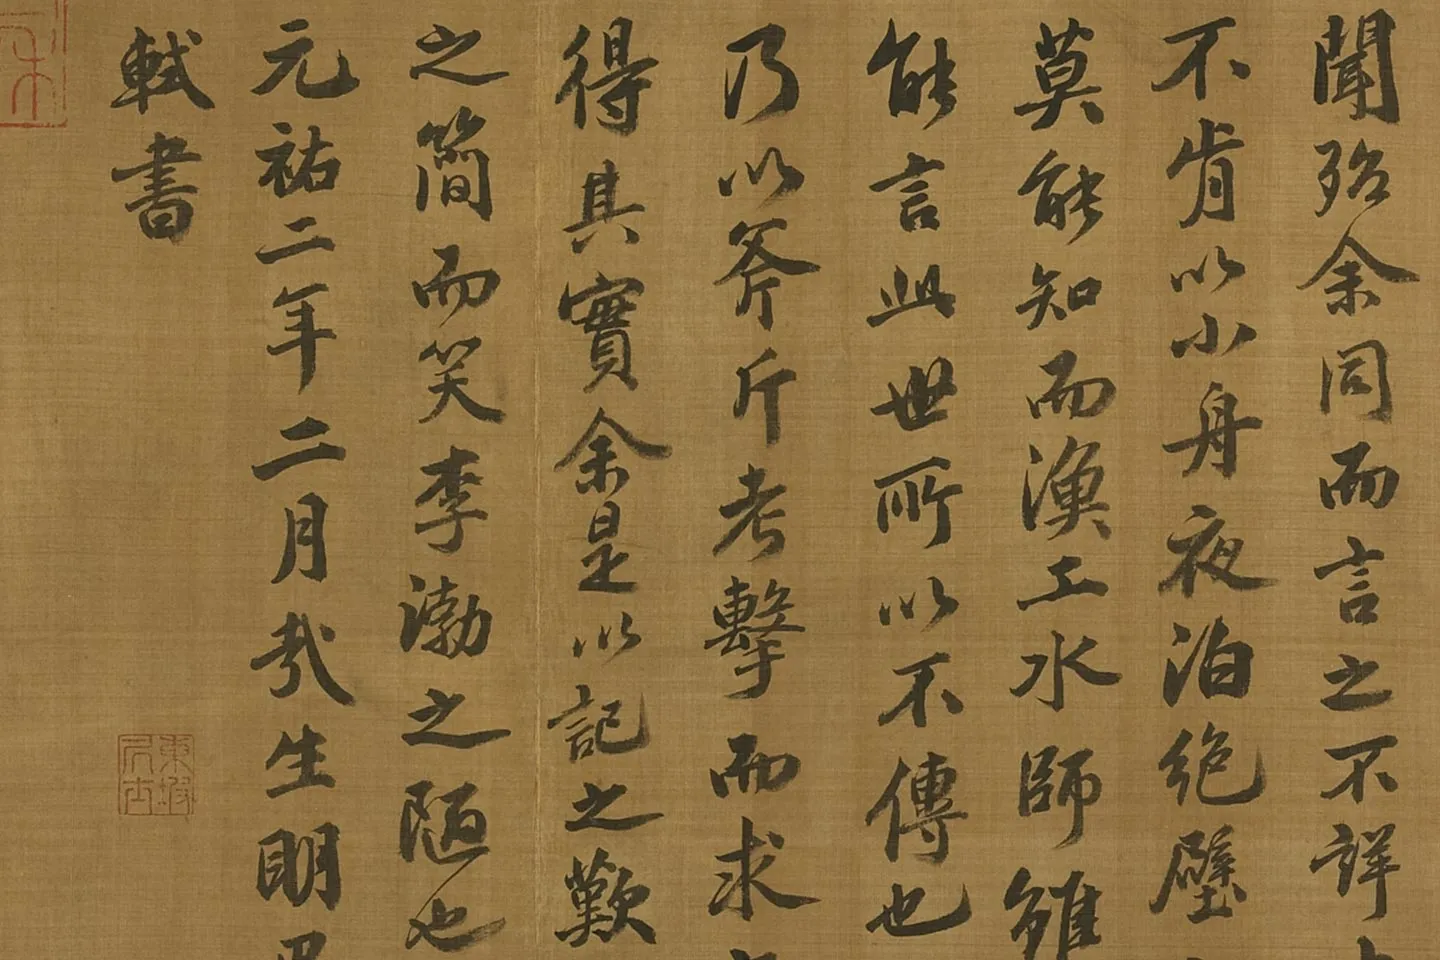 聞殆余同而言之不詳
不肯以小舟夜泊絶壁
莫能知而漁工水師雖
能言此世所以不傳也
乃以斧斤考擊而求
得其實余是以記之歎
之簡而笑李渤之陋也
元祐二年二月哉生明
軾書
東坡居士